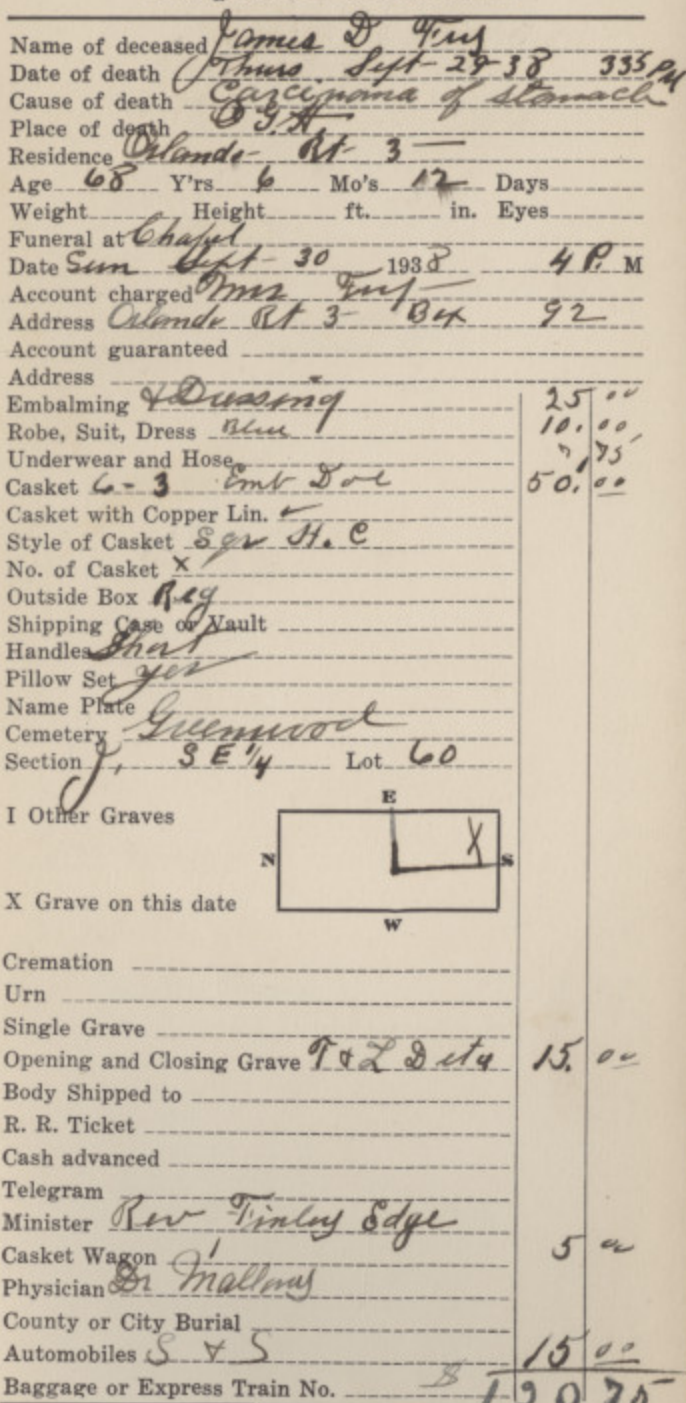 Name of deceased James D
Date of death Thurs Sept 29-38 335 PM
Cause of death Carcinoma of stomach
Place of death O G H
Residence Orlando - Rt 3 -
Age 68 Y'rs 6 Mo's 12 Days
Weight Height ft. in. Eyes
Funeral at Chapel
Date Sun Sept - 30 1938 4 P. M
Account charged Mrs
Address Orlando Rt 3 - Box 92
Account guaranteed
Address
Embalming & Dressing 25 00
Robe, Suit, Dress Blue 10. 00
Underwear and Hose 75
Casket 6-3 Emb Doe 50. 00
Casket with Copper Lin. ✓
Style of Casket Sqr H. C
No. of Casket X
Outside Box Reg
Shipping Case or Vault
Handles Short
Pillow Set yes
Name Plate
Cemetery Greenwood
Section J, S E 1/4 Lot 60
E
I Other Graves
N X S
X Grave on this date
W
Cremation
Urn
Single Grave
Opening and Closing Grave T & L 15. 00
Body Shipped to
R. R. Ticket
Cash advanced
Telegram
Minister Rev Finley Edge
Casket Wagon 5 00
Physician Dr
County or City Burial
Automobiles S & S 15 00
Baggage or Express Train No. $ 120 75